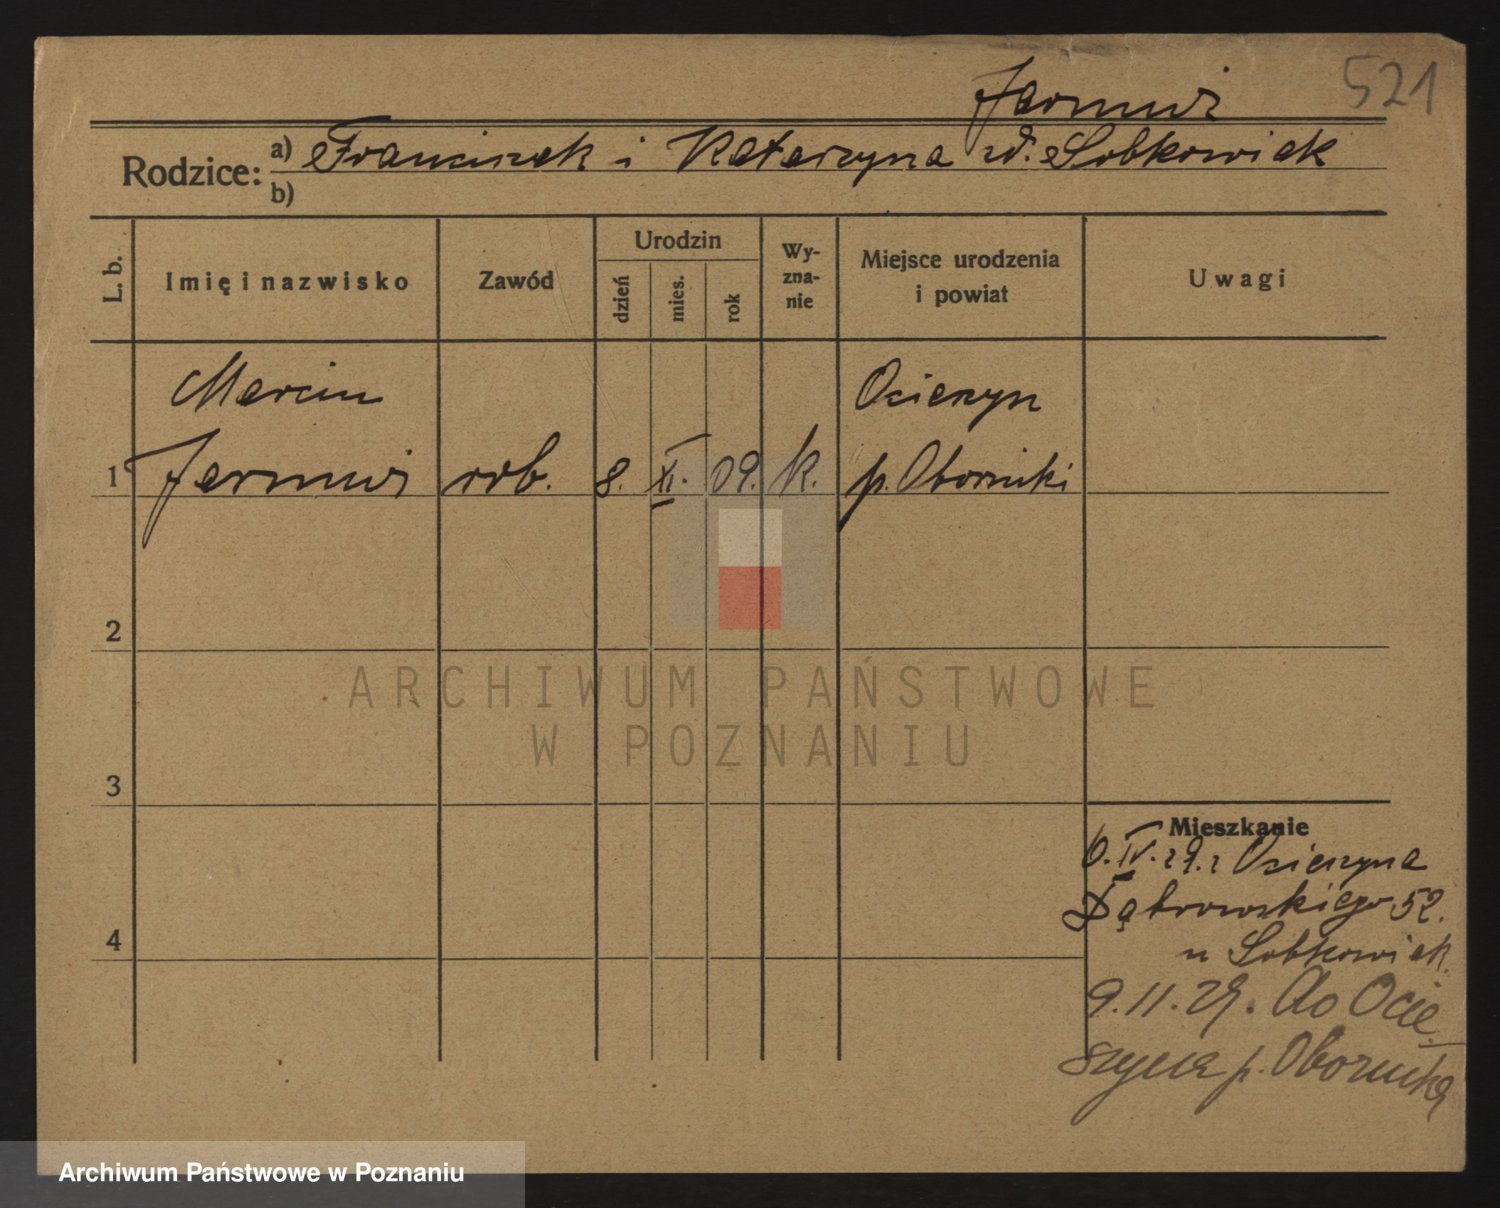 521
Jarmuż
Rodzice: a) Franciszek i Katarzyna zd. Sobkowiak
b)
L. b.
Imię i nazwisko
Zawód
Urodzin
dzień
mies.
rok
Wy-
zna-
nie
Miejsce urodzenia
i powiat
Uwagi
Marcin
Ocieszyn
1 Jarmuż rob. 8. XI. 09. k. p. Oborniki
2
ARCHIWUM PAŃSTWOWE
W POZNANIU
3
Mieszkanie
6. IV. 29. z Ocieszyna
Dąbrowskiego 52.
4
u Sobkowiak
9.11.29. do Ocie
szyna p. Oborniki
Archiwum Państwowe w Poznaniu